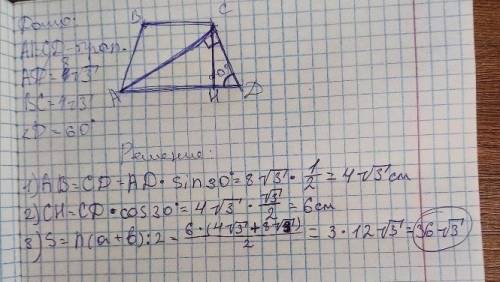 Дано:
B C
ABCD-трап.
AD=8√3
BC=4√3
A H D
∠D=60°
Решение:
1) AB=CD=AD·sin30°=8√3·1/2=4√3см
2) CH=CD·cos30°=4√3·√3/2=6см
3) S=h(a+b):2=6·(4√3+8√3)/2=3·12√3=36√3